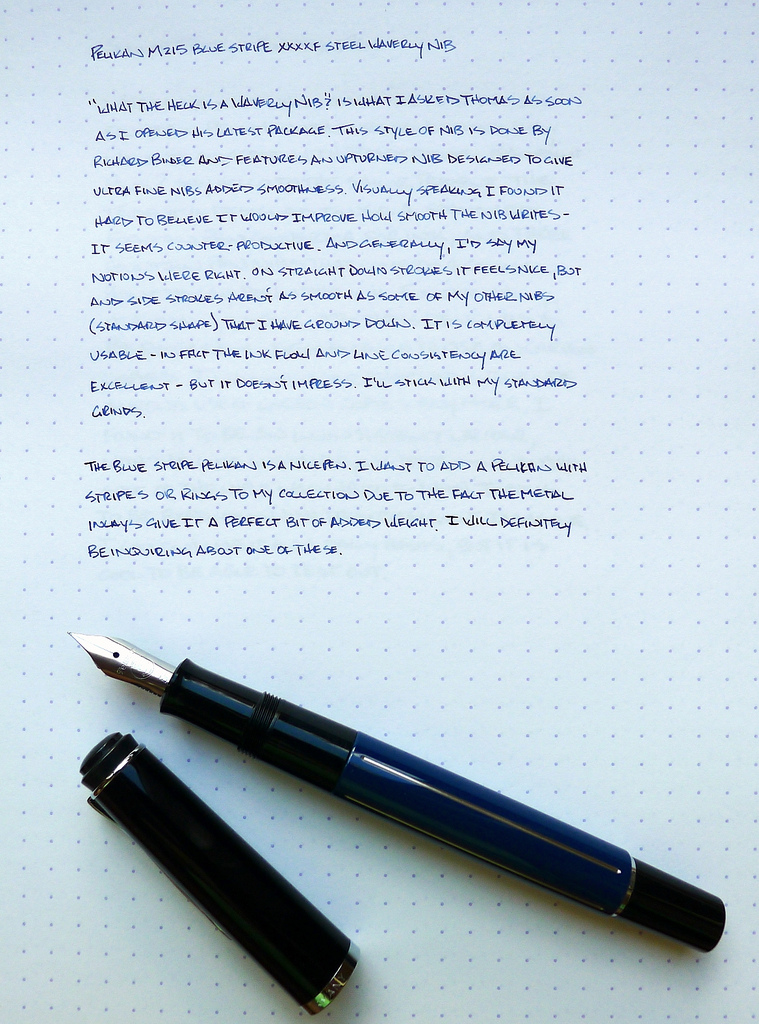 PELIKAN M215 BLUE STRIPE XXXXF STEEL WAVERLY NIB
"WHAT THE HECK IS A WAVERLY NIB?" IS WHAT I ASKED THOMAS AS SOON
AS I OPENED HIS LATEST PACKAGE. THIS STYLE OF NIB IS DONE BY
RICHARD BINDER AND FEATURES AN UPTURNED NIB DESIGNED TO GIVE
ULTRA FINE NIBS ADDED SMOOTHNESS. VISUALLY SPEAKING I FOUND IT
HARD TO BELIEVE IT WOULD IMPROVE HOW SMOOTH THE NIB WRITES -
IT SEEMS COUNTER-PRODUCTIVE. AND GENERALLY, I'D SAY MY
NOTIONS WERE RIGHT. ON STRAIGHT DOWN STROKES IT FEELS NICE, BUT
AND SIDE STROKES AREN'T AS SMOOTH AS SOME OF MY OTHER NIBS
(STANDARD SHAPE) THAT I HAVE GROUND DOWN. IT IS COMPLETELY
USABLE - IN FACT THE INK FLOW AND LINE CONSISTENCY ARE
EXCELLENT - BUT IT DOESN'T IMPRESS. I'LL STICK WITH MY STANDARD
GRINDS.
THE BLUE STRIPE PELIKAN IS A NICE PEN. I WANT TO ADD A PELIKAN WITH
STRIPES OR RINGS TO MY COLLECTION DUE TO THE FACT THE METAL
INLAYS GIVE IT A PERFECT BIT OF ADDED WEIGHT. I WILL DEFINITELY
BE INQUIRING ABOUT ONE OF THESE.